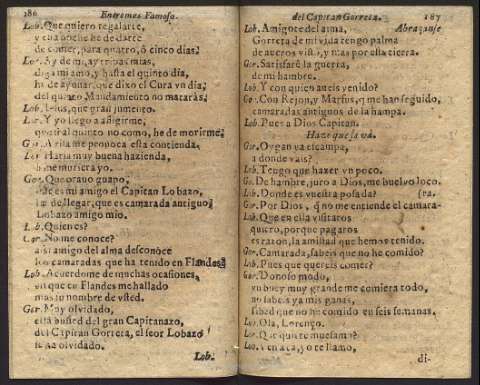 186 Entremes Famoso.
Lob. Que quiero regalarte,
y esta noche he de darte
de comer, para quatro, ò cinco dias.
Lor. Ay de mi, ay tripas mias,
digo mi amo, y hasta el quinto dia,
ha de ayunar, que dixo el Cura vn dia,
del quinto Mandamiento no mataràs.
Lob. Iesus, que gran jumento.
Lor. Y yo llego a afligirme,
que si al quinto no como, he de morirme.
Gor. A risa me prouoca esta contienda.
Lor. Haria muy buena hazienda,
si me muriera yo.
Gor. Que brauo guapo,
este es mi amigo el Capitan Lobazo,
de llegar, que es camarada antiguo:
Lobazo amigo mio.
Lob. Quien es?
Gor. No me conoce?
assi amigo del alma desconoce
los camaradas que ha tenido en Flandes?
Lob. Acuerdome de muchas ocasiones,
en que en Flandes me hallado
mas su nombre de vsted.
Gor. Muy olvidado,
està busted del gran Capitanazo,
del Capitan Gorreta, el seor Lobazo
se ha olvidado.
Lob.
del Capitan Gorreta. 187
Lob. Amigo te del alma, Abraçanse
Gorreta de mi vida tengo palma
de aueros visto, y mas por esta tierra.
Gor. Satisfarè la guerra,
de mi hambre.
Lob. Y con quien aueis venido?
Gor. Con Rejon, y Marfus, q me han seguido,
camaradas antiguos de la hampa.
Lob. Pues a Dios Capitan.
Haze que se và.
Gor. Oygan ya escampa,
a donde vais?
Lob. Tengo que hazer vn poco.
Go. De hambre, juro a Dios, me buelvo loco.
Lob. Donde es vuestra posada? (ra.
Gor. Por Dios, q no me entiende el camara-
Lob. Que en ella visitaros
quiero, porque pagaros
es razon, la amistad que hemos tenido.
Gor. Camarada, sabeis que no he comido?
Lob. Pues que quereis comer?
Gor. Donoso modo,
vn buey muy grande me comiera todo,
no sabeis ya mis ganas,
sabed que no he comido en seis semanas.
Lob. Ola, Lorenço.
Lor. Que quiere muesamo?
Lob. Ven aca, yo te llamo,
di-